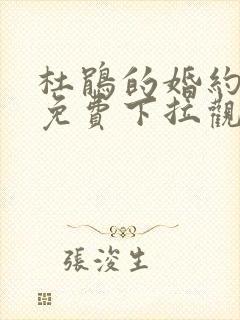 杜鵑的婚約
免費下拉觀
張浚生